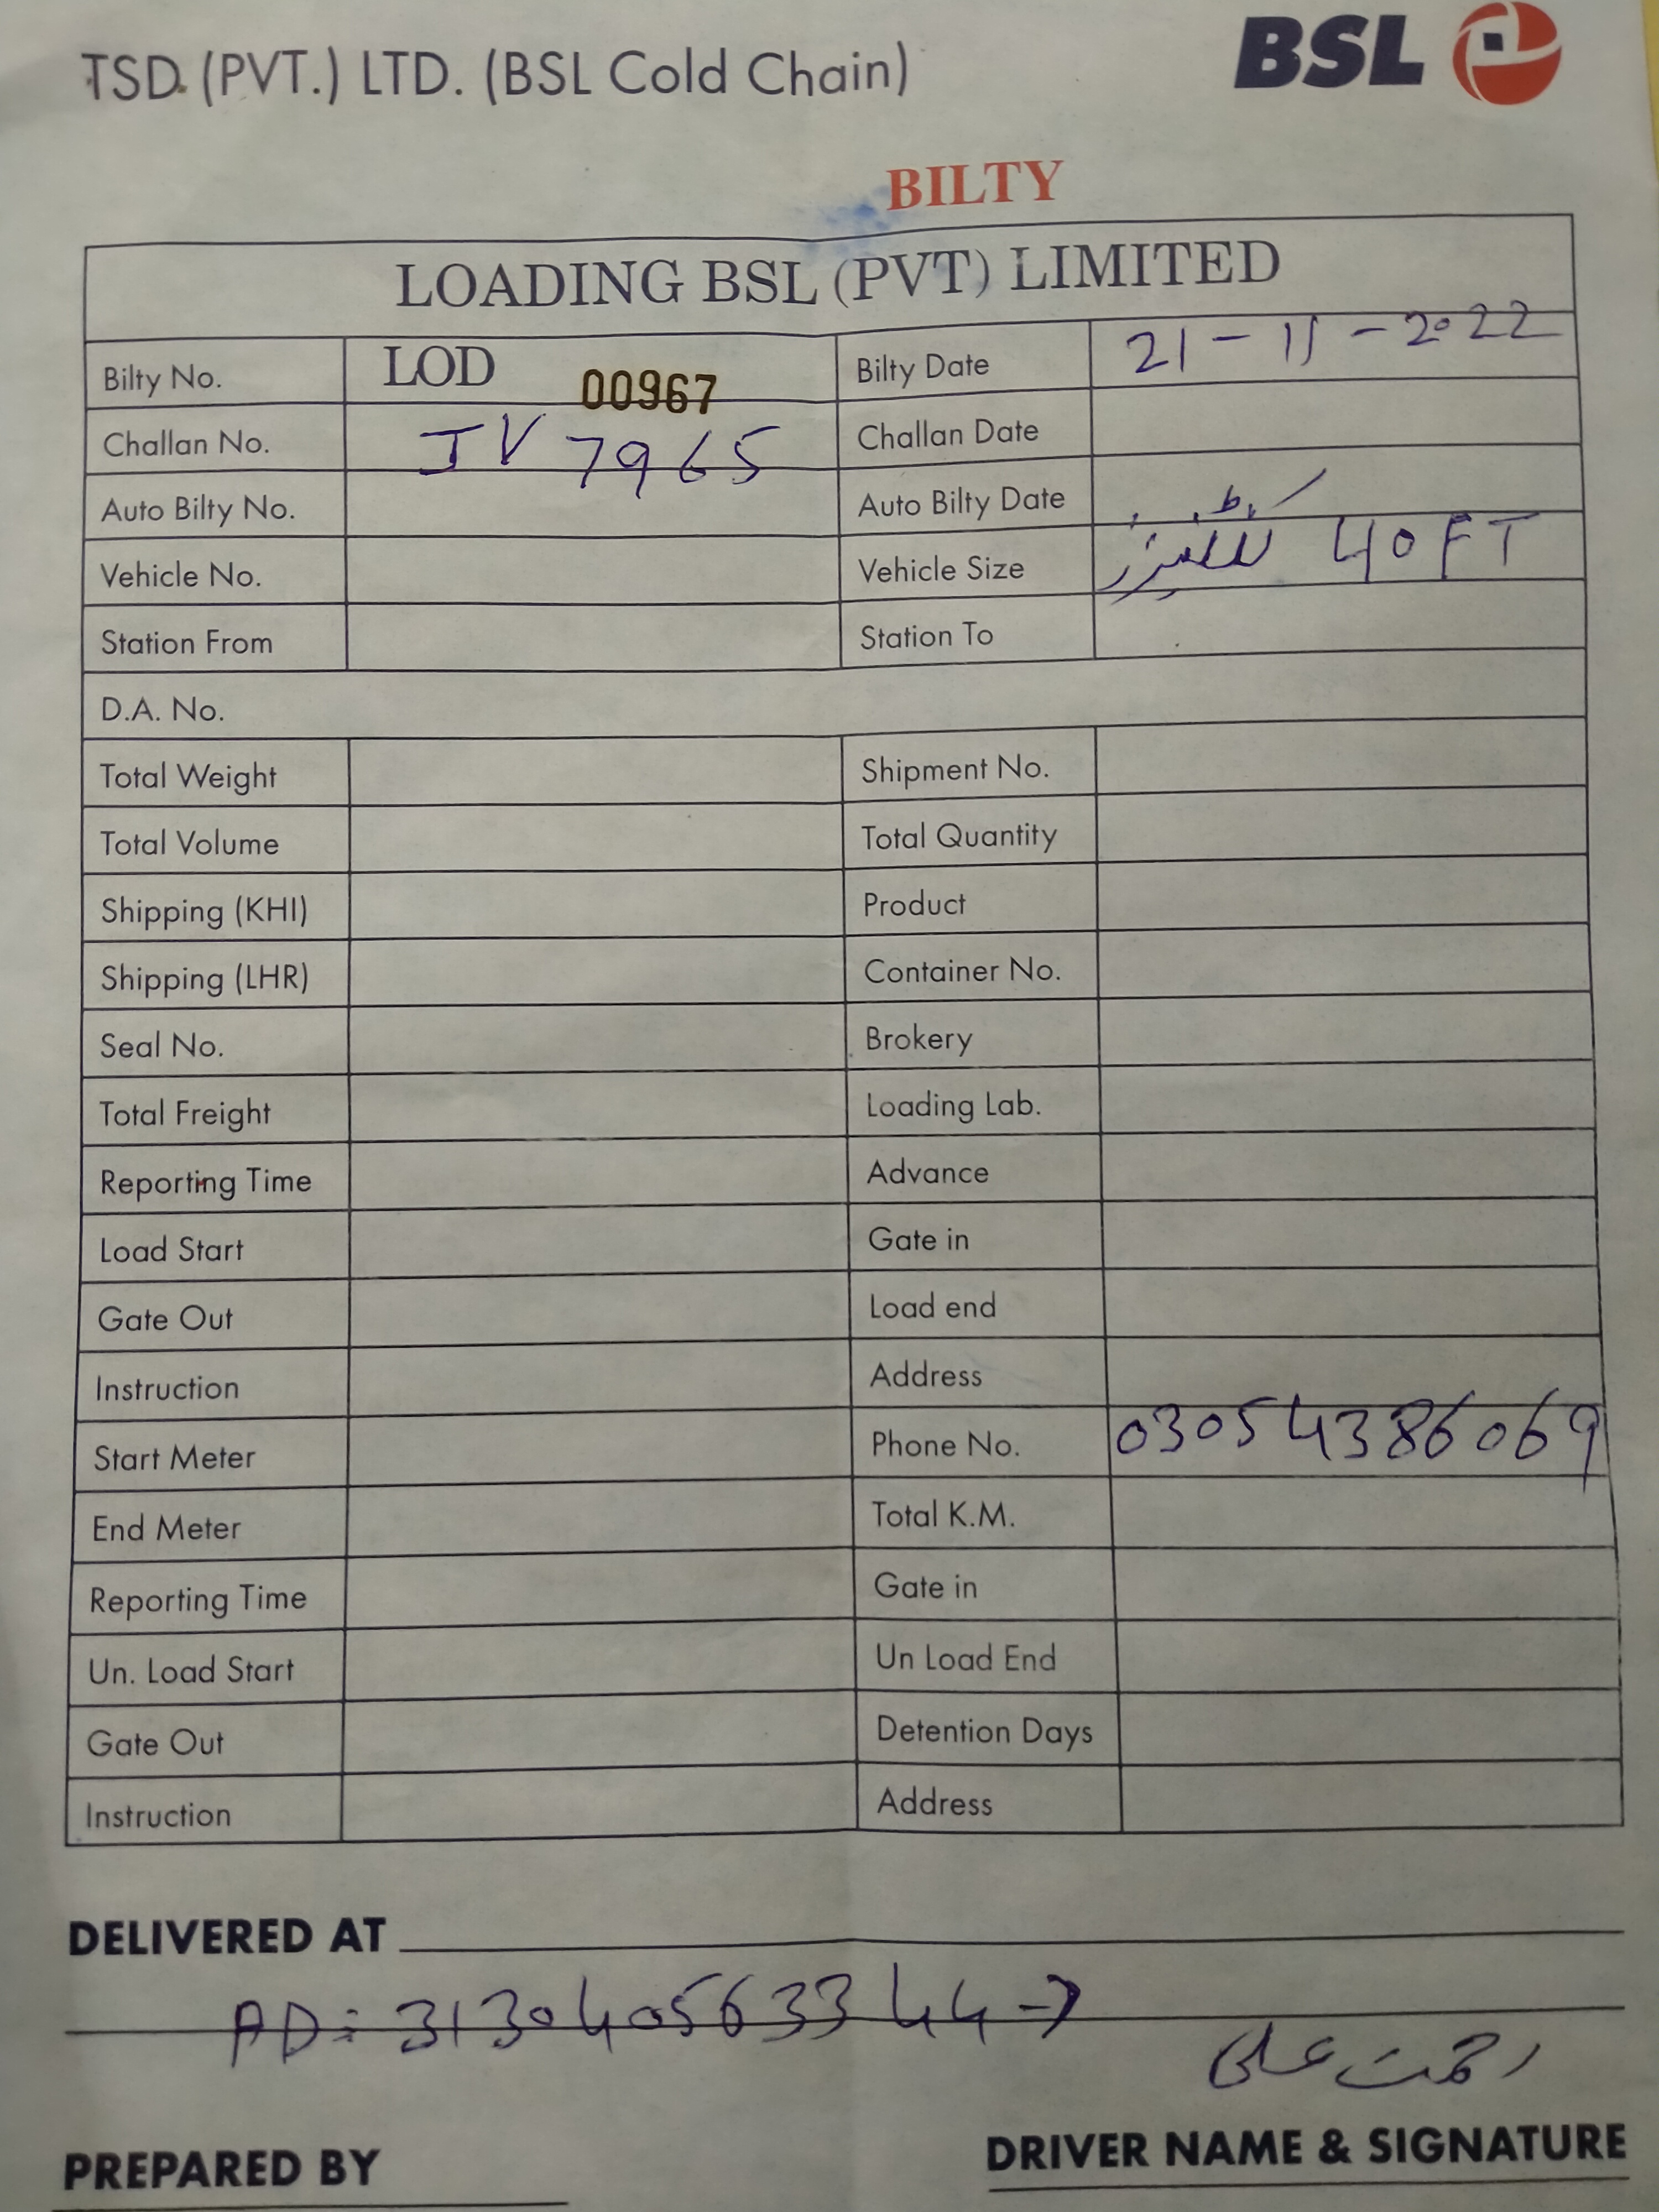 TSD. (PVT.) LTD. (BSL Cold Chain)
BSL
BILTY
LOADING BSL (PVT) LIMITED
Bilty No. LOD 00967 Bilty Date 21-11-2022
Challan No. JV 7965 Challan Date
Auto Bilty No. Auto Bilty Date
Vehicle No. Vehicle Size 40FT
Station From Station To
D.A. No.
Total Weight Shipment No.
Total Volume Total Quantity
Shipping (KHI) Product
Shipping (LHR) Container No.
Seal No. Brokery
Total Freight Loading Lab.
Reporting Time Advance
Load Start Gate in
Gate Out Load end
Instruction Address
Start Meter Phone No. 03054386069
End Meter Total K.M.
Reporting Time Gate in
Un. Load Start Un Load End
Gate Out Detention Days
Instruction Address
DELIVERED AT
AD: 313040563344→
رحمت علی
PREPARED BY DRIVER NAME & SIGNATURE